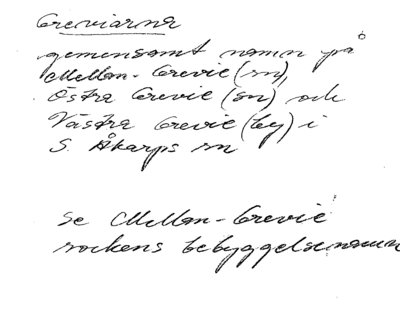 Greviarna
gemensamt namn på
Mellan-Grevie (sn),
Östra Grevie (sn) och
Västra Grevie (by) i
S. Åkarps sn
se Mellan-Grevie
sockens bebyggelsenamn